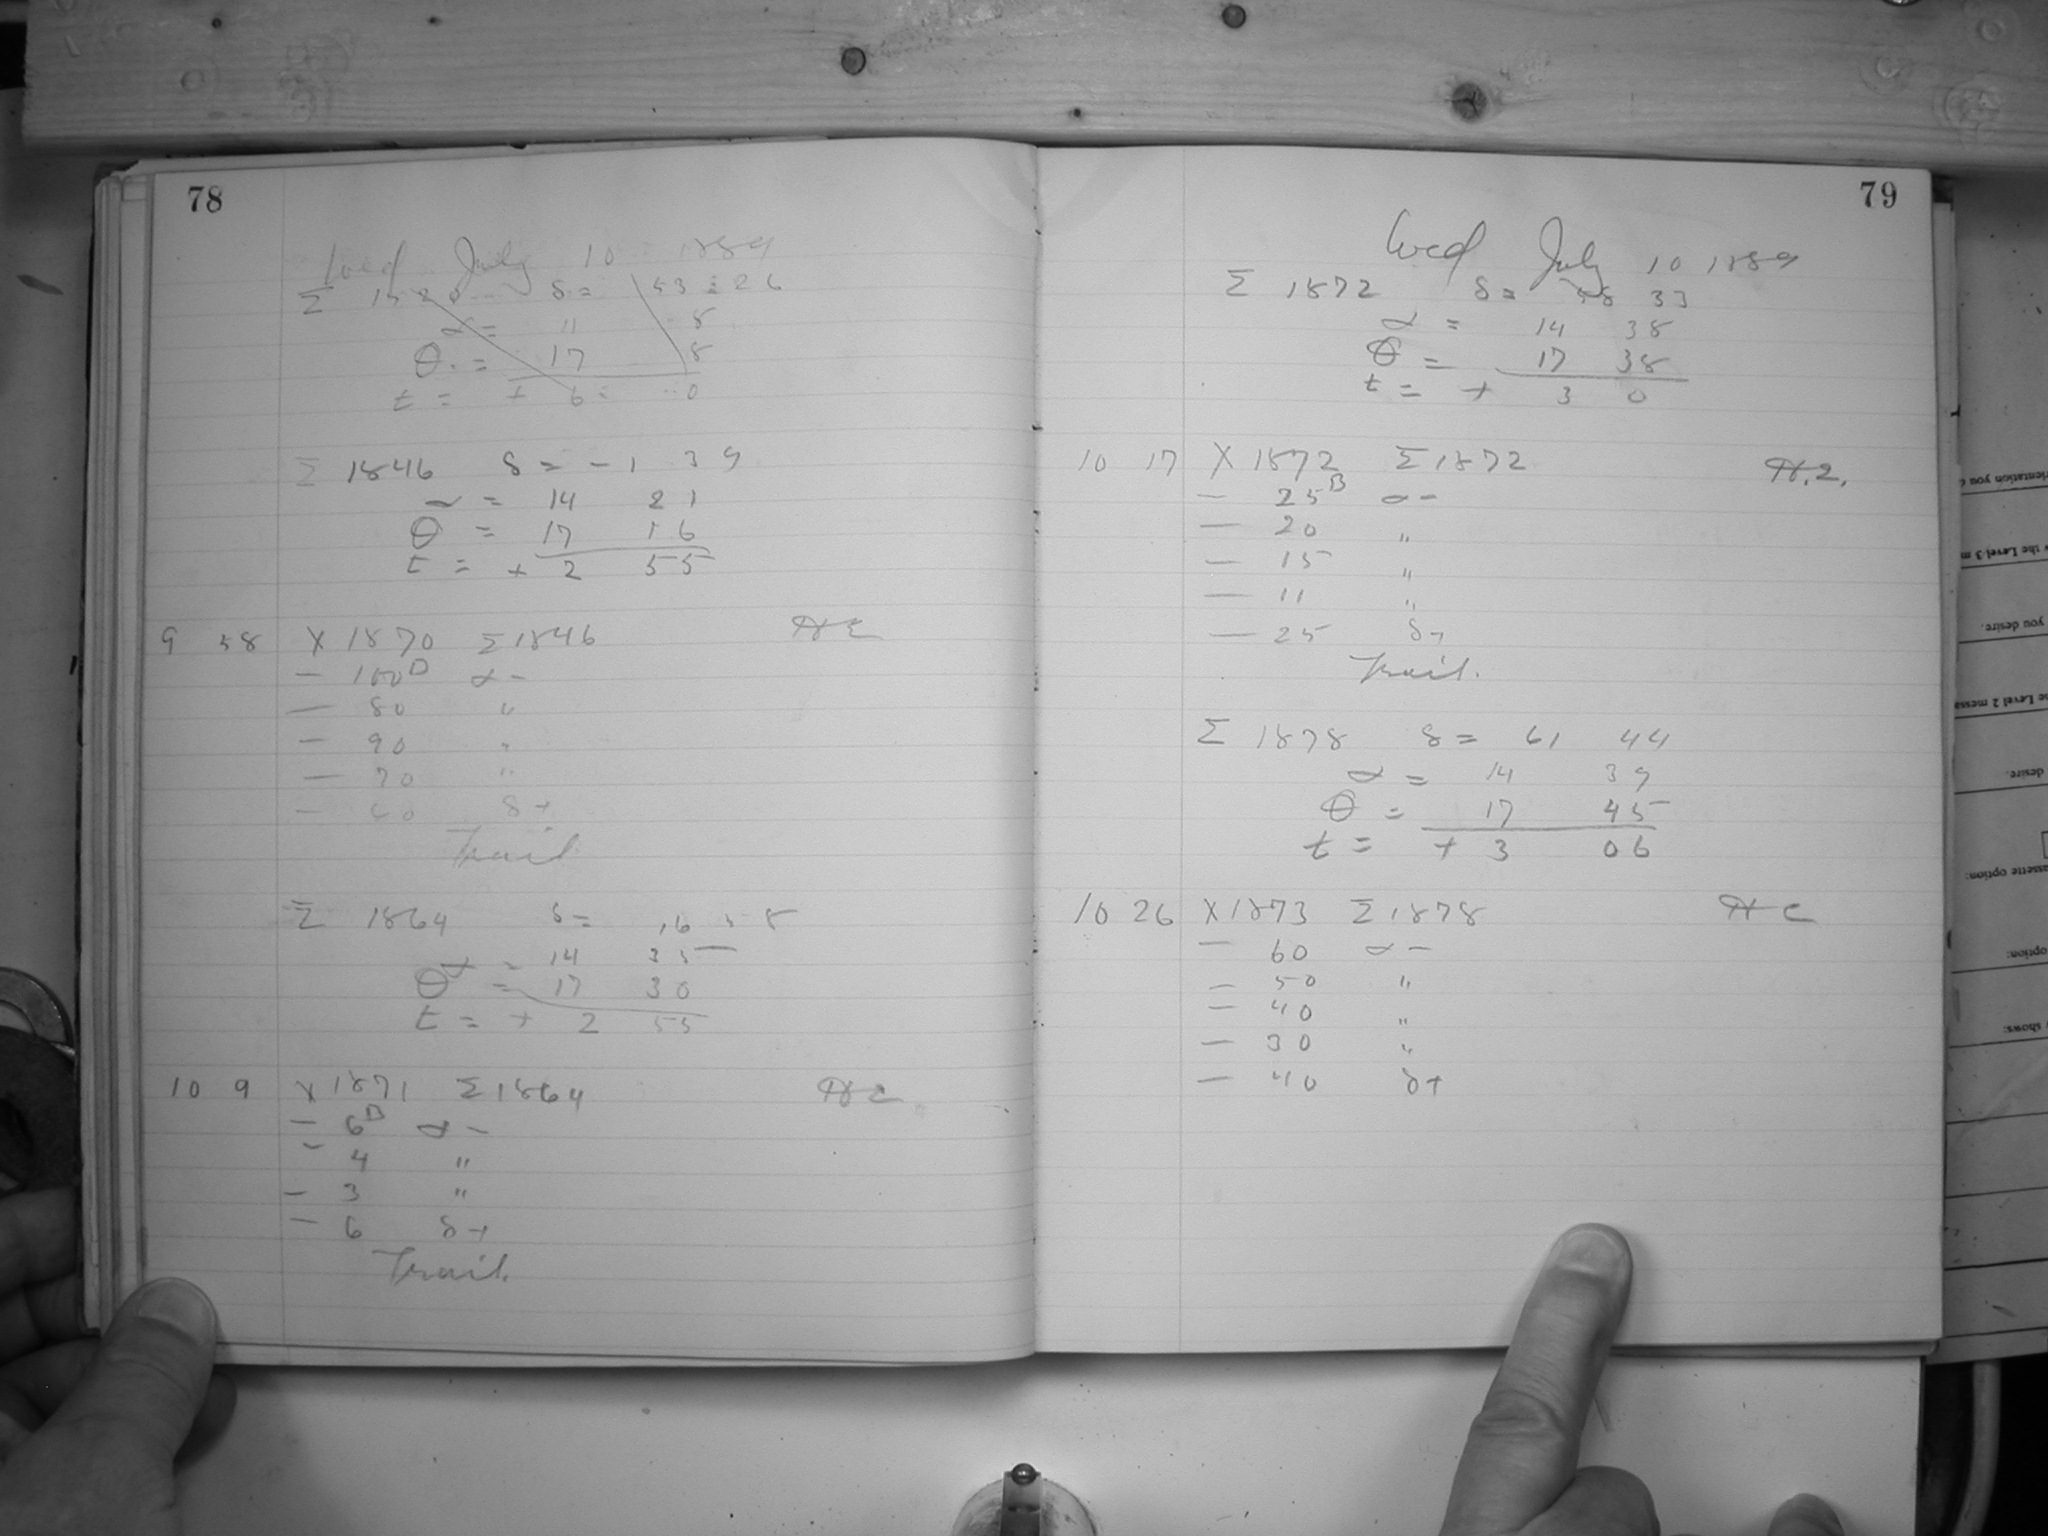 78
Wed July 10 1889
Σ 1520 δ = 53 : 26
α = 11 8
θ. = 17 8
t = + 6 : 0
Σ 1846 δ = - 1 39
α = 14 21
θ = 17 16
t = + 2 55
9 58 X 1870 Σ 1846
— 100 B α -
— 80 "
— 90 "
— 70 "
— 60 δ +
Trail
Σ 1864 δ = 16 58
α = 14 35
θ = 17 30
t = + 2 55
10 9 X 1871 Σ 1864
— 6 B α -
— 4 "
— 3 "
— 6 δ +
Trail.
79
Wed July 10 1889
Σ 1872 δ = 58 33
α = 14 38
θ = 17 38
t = + 3 0
10 17 X 1872 Σ 1872
— 25 B α -
— 20 "
— 15 "
— 11 "
— 25 δ +
Trail.
Σ 1878 δ = 61 44
α = 14 39
θ = 17 45
t = + 3 06
10 26 X 1873 Σ 1878
— 60 α -
— 50 "
— 40 "
— 30 "
— 40 δ +
you desire.
desire.
option:
shows: